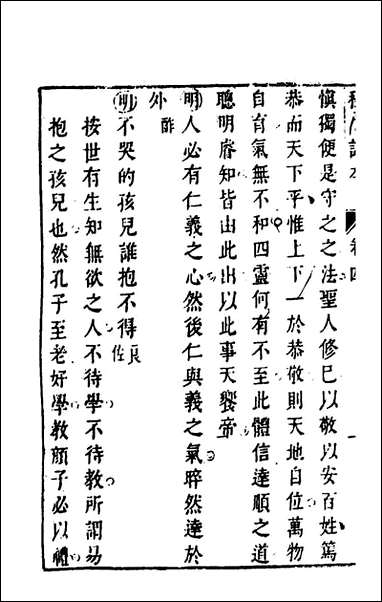 程氏語本 卷四
愼獨便是守之之法聖人修已以敬以安百姓篤
恭而天下平惟上下一於恭敬則天地自位萬物
自育氣無不和四靈何有不至此體信達順之道
聰明睿知皆由此出以此事天饗帝
明人必有仁義之心然後仁與義之氣睟然達於
外 酢
明不哭的孩兒誰抱不得 良佐
按世有生知無欲之人不待學不待教所謂易
抱之孩兒也然孔子至老好學教顏子必以禮